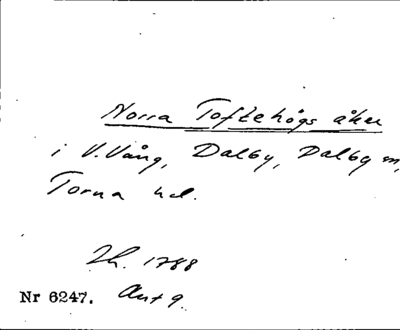 Norra Toftehögs åker
i V. Vång, Dalby, Dalby sn,
Torna hd.
Zh. 1788
Nr 6247. Ant 9.